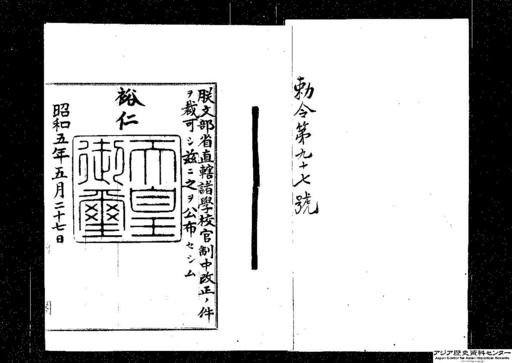 勅令第九十七號
朕文部省直轄諸學校官制中改正ノ件
ヲ裁可シ茲ニ之ヲ公布セシム
裕仁
天皇
御璽
昭和五年五月二十七日
アジア歴史資料センター
Japan Center for Asian Historical Records